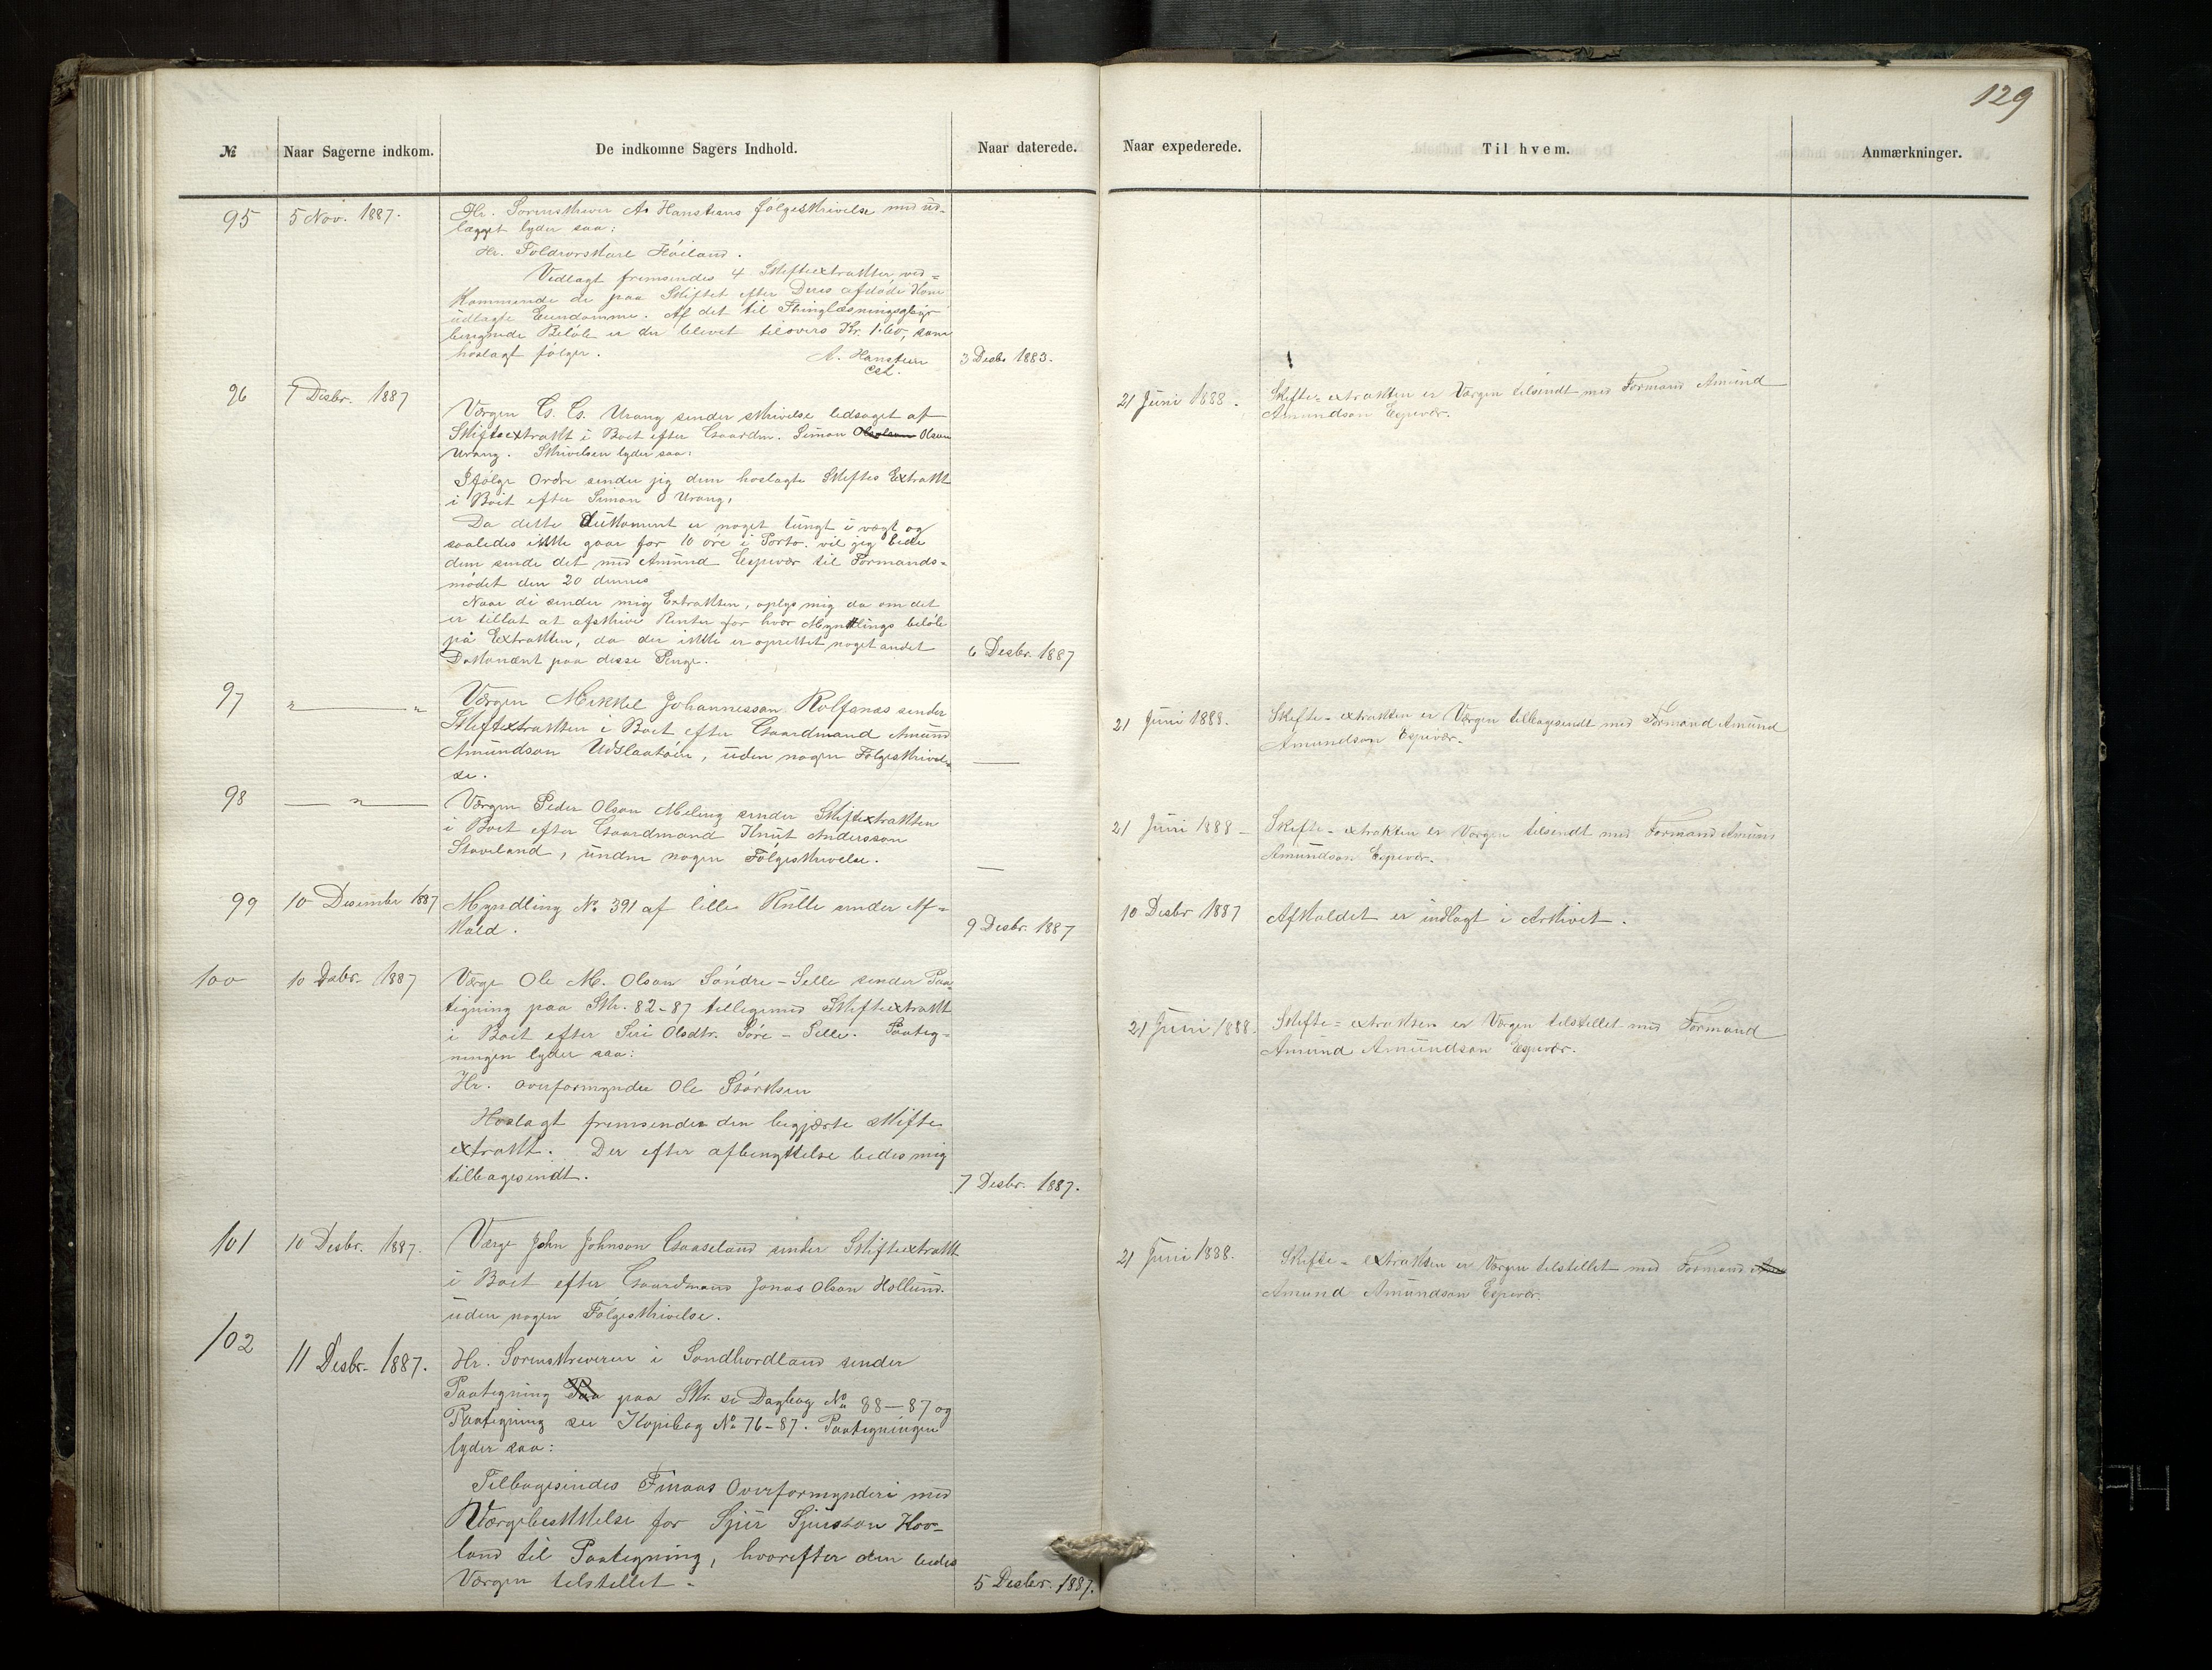 129
№ Naar Sagerne indkom. De indkomne Sagers Indhold. Naar daterede. Naar expederede. Til hvem. Anmærkninger.
95 5 Nov. 1887. Hr. Sorenskriver As Hansteens følgeskrivelse med ud-
lægget lyder saa:
Hr. Føderorskarl Høiland.
Vedlagt fremsendes 4 Skifteextrakter ved=
kommende de paa Skiftet efter Deres afdøde Kone
udlagte Eiendomme. Af det til Thinglæsningsgebyr
beregnede Beløb er der blevet tilovers Kr. 1.60, som
hoslagt følger.
A. Hansteen 3 Desbr 1883.
cst.
96 7 Desbr. 1887
Værgen Cs. Cs. Urang sender skrivelse ledsaget af
Skifteextrakt i Boet efter Gaardm. Simon Olson
Urang. Skrivelsen lyder saa:
Ifølge Ordre sender jeg dem hoslagte Skiftes Extrakt
i Boet efter Simon O Urang,
Da dette Dukkoment er noget tungt i vægt og
saaledes ikke gaar for 10 øre i Porto. vil jeg bede
dem sende det med Amund Espevær til Formands=
mødet den 20 dennes
Naar de sender mig Extrakten, oplys mig da om det
er tillat at afskrive Renter for hver Myndlings beløb
på Extrakten, da der ikke er oprettet noget andet
Dokkument paa disse Penge. 6 Desbr. 1887
21 Juni 1888. Skifte=extrakten er Værgen tilsendt med Formand Amund
Amundson Espevær.
97 " — " Værgen Mikkel Johannesson Rolfsnæs sender
Skifteextrakten i Boet efter Gaardmand Amund
Amundson Udslaatøen, uden nogen Følgeskrivel=
se. —
21 Juni 1888. Skifte-extrakten er Værgen tilbagesendt med Formand Amund
Amundson Espevær.
98 — " — Værgen Peder Olson Meling sender Skifteextrakten
i Boet efter Gaardmand Knut Andersson
Staveland, unden nogen Følgeskrivelse. —
21 Juni 1888 - Skifte-extrakten er Værgen tilsendt med Formand Amund
Amundson Espevær.
99 10 Desember 1887 Myndling No 391 af lille Hulle sender Af=
kald. 9 Desbr. 1887
10 Desbr 1887 Afkaldet er indlagt i Arkivet.
100 10 Dsbr. 1887 Værge Ole M. Olson Søndre-Selle sender Paa=
tegning paa Skr. 82-87 tilligemed Skifteextrakt
i Boet efter Siri Olsdtr. Søre-Selle. Paateg=
ningen lyder saa:
Hr. overformynder Ole Størksen
Hoslagt fremsendes den begjærte skifte
extrakt. Der efter afbenyttelse bedes mig
tilbagesendt. 7 Desbr. 1887.
21 Juni 1888. Skifte=extrakten er Værgen tilstillet med Formand
Amund Amundson Espevær.
101 10 Desbr. 1887. Værge John Johnson Gaaseland sender Skifteextrakt
i Boet efter Gaardmand Jonas Olson Hollund.
uden nogen Følgeskrivelse.
21 Juni 1888. Skifte-extrakten er Værgen tilstillet med Formand
Amund Amundson Espevær.
102 11 Desbr. 1887. Hr. Sorenskriveren i Søndhordland sender
Paategning Paa paa Skr. se Dagbog No 88-87 og
Paategning see Kopibog No 76-87. Paategningen
lyder saa:
Tilbagesendes Finaas Overformynderi med
Værgebeskikkelse for Sjur Sjursson Hov=
land til Paategning, hvorefter den bedes
Værgen tilstillet - 5 Desbr. 1887.